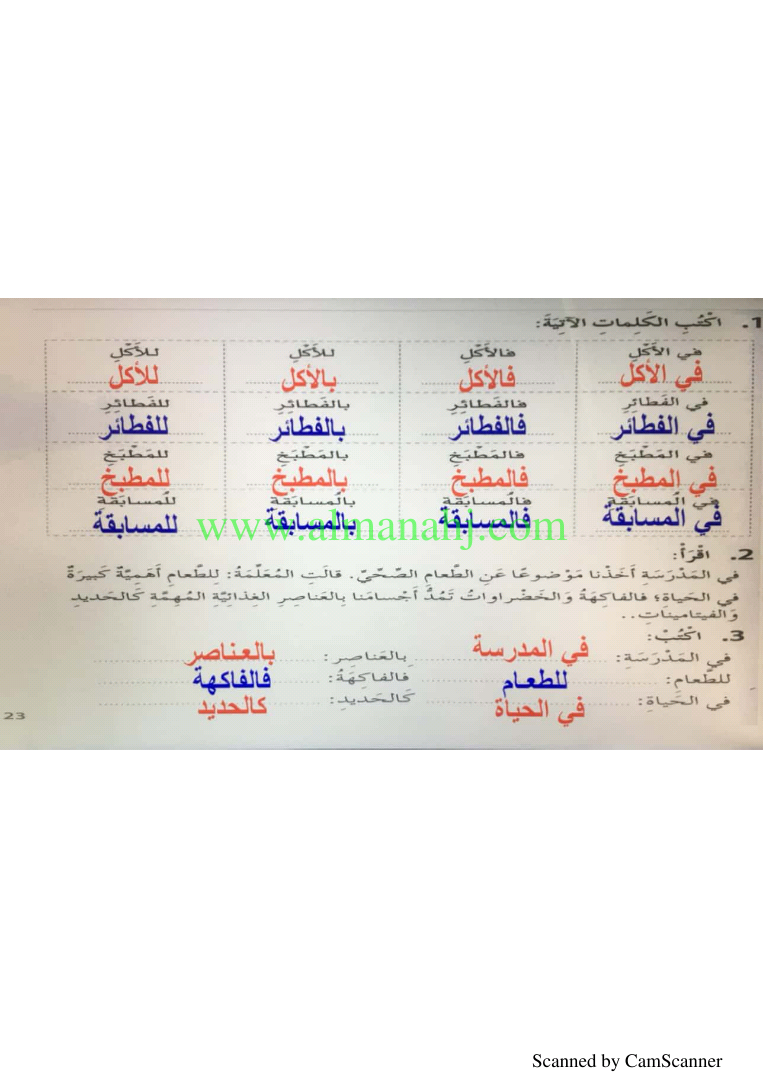 1. اكْتُبِ الكَلِماتِ الآتِيَةَ:
في الأَكْلِ فالأَكْلِ للأَكْلِ للأَكْلِ
في الأكل فالأكل بالأكل للأكل
في الفَطائِرِ فالفَطائِرِ بالفَطائِرِ للفَطائِرِ
في الفطائر فالفطائر بالفطائر للفطائر
في المَطْبَخِ فالمَطْبَخِ بالمَطْبَخِ للمَطْبَخِ
في المطبخ فالمطبخ بالمطبخ للمطبخ
في المُسابَقَةِ فالمُسابَقَةِ بالمُسابَقَةِ للمُسابَقَةِ
في المسابقة فالمسابقة بالمسابقة للمسابقة
www.almanahj.com
2. اقْرَأْ:
في المَدْرَسَةِ أَخَذْنا مَوْضوعًا عَنِ الطَّعامِ الصِّحِّيِّ. قالَتِ المُعَلِّمَةُ: لِلطَّعامِ أَهَمِيَّةٌ كَبيرَةٌ
في الحَياةِ؛ فالفاكِهَةُ وَالخَضْراواتُ تَمُدُّ أَجْسامَنا بِالعَناصِرِ الغِذائِيَّةِ المُهِمَّةِ كَالحَديدِ
وَالفيتاميناتِ..
3. اكْتُبْ:
في المَدْرَسَةِ: في المدرسة بِالعَناصِرِ: بالعناصر
للطَّعامِ: للطعام فالفاكِهَةُ: فالفاكهة
في الحَياةِ: في الحياة كَالحَديدِ: كالحديد
23
Scanned by CamScanner